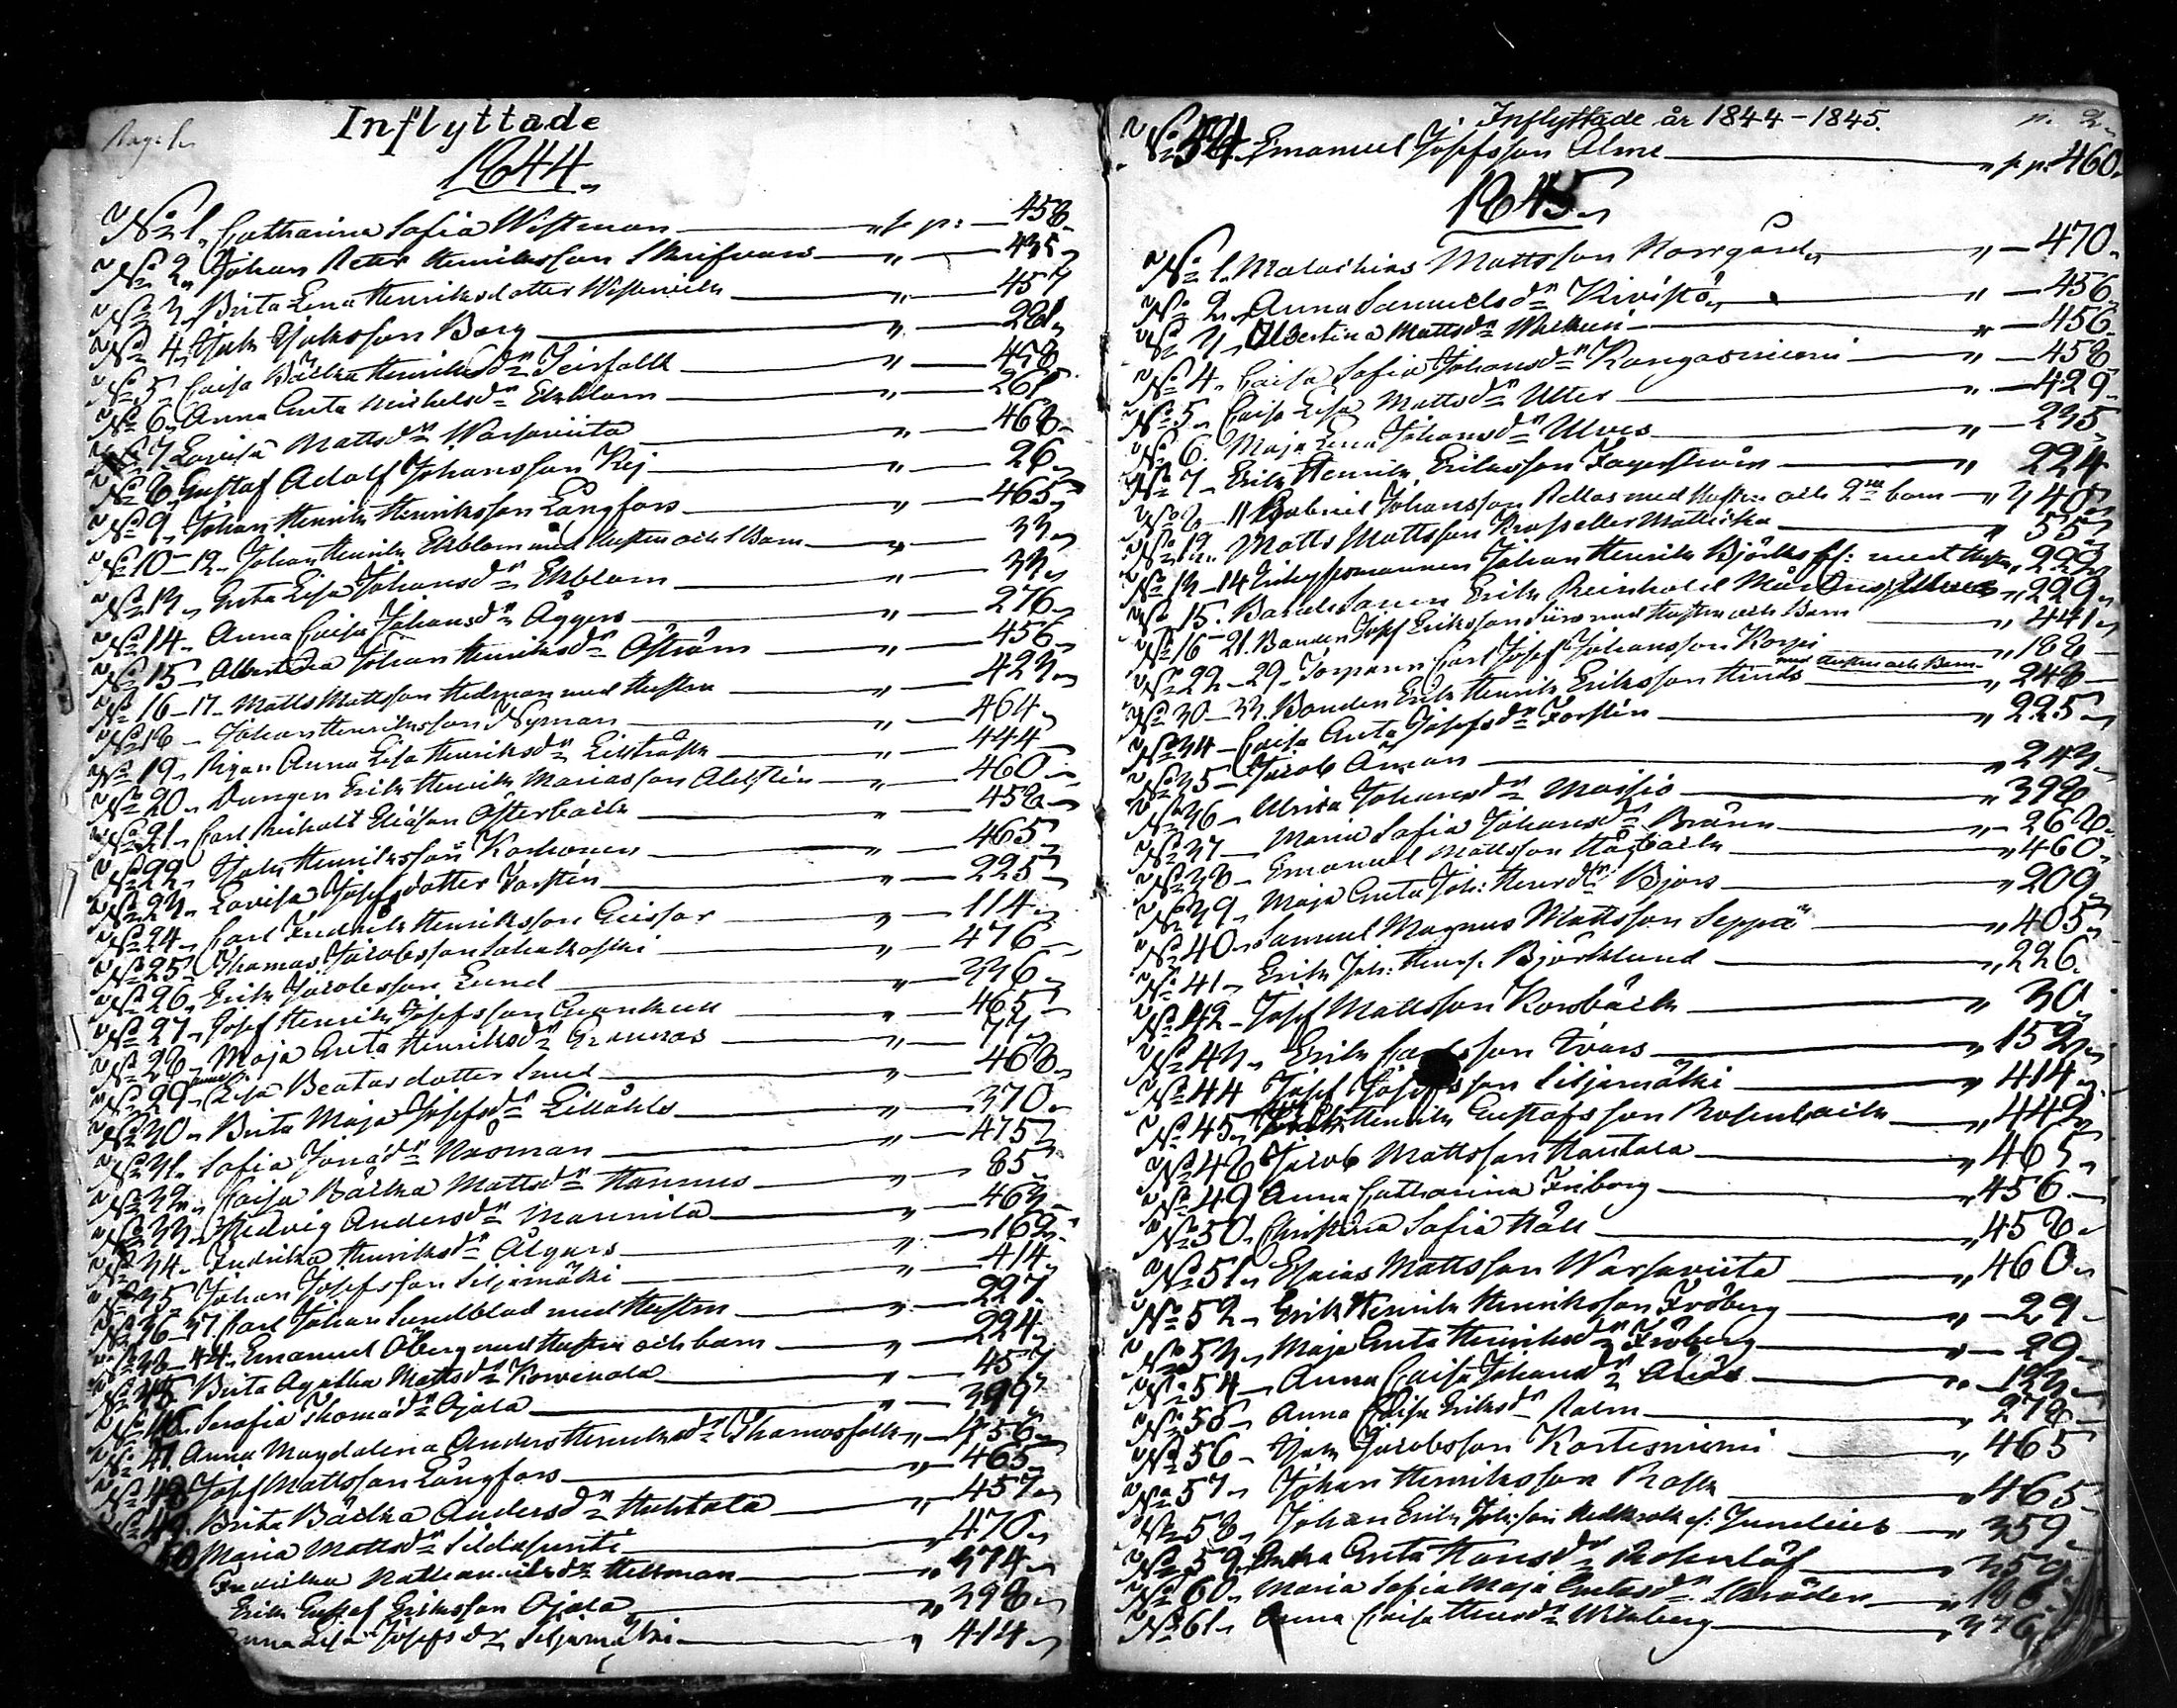 Inflyttade
1844.
No 1. Catharina Sofia Wistman — p: 458.
No 2. Johan Peter Henriksson Skrifvars — " — 435.
No 3. Brita Lena Henriksdotter Westerwik — " — 457
No 4. Isak Isaksson Borg — " — 281.
No 5. Caisa Bäcka Henriksdr Teirfolk — " — 458.
No 6. Anna Greta Michelsdr Ekblom — " — 261.
No 7. Lovisa Mattsdr Warsaviita — " — 468.
No 8. Gustaf Adolf Johansson Rej — " — 26.
No 9. Johan Henrik Henriksson Långfors — " — 465.
No 10-12. Johan Henrik Ekblom med Hustru och 1 Barn — " — 33.
No 13. Greta Lisa Johansdr Ekblom — " — 33.
No 14. Anna Caisa Johansdr Äggers — " — 276.
No 15. Albertina Johan Henriksdr Öström — " — 456.
No 16-17. Matts Mattsson Hedman med Hustru — " — 423.
No 18. Johan Henriksson Nyman — " — 464.
No 19. Pigan Anna Lisa Henriksdr — " — 444
No 20. Drängen Erik Henrik Mariasson Ahlstén — " — 460.
No 21. Carl Reinholt Eliasson Österback — " — 458.
No 22. Isak Henriksson Korhonen — " — 465.
No 23. Lovisa Josefsdotter Forstén — " — 225.
No 24. Carl Fredrik Henriksson Geisor — " — 114.
No 25. Thomas Jacobsson Sahakoski — " — 476.
No 26. Erik Jacobsson Lund — " — 336.
No 27. Josef Henrik Josefsson Grankull — " — 465.
No 28. Maja Greta Henriksdr Grannas — " — 77.
No 29. Anna Lisa Beatasdotter Smed — " — 468.
No 30. Brita Maja Josefsdr Lillåhls — " — 370.
No 31. Sofia Jonædr Näsman — " — 475.
No 32. Caisa Bäcka Mattsdr Hannus — " — 85.
No 33. Hedvig Andersdr Mannila — " — 463.
No 34. Fredrika Henriksdr Älgars — " — 162.
No 35. Johan Josefsson Siljamäki — " — 414.
No 36-37. Carl Johan Lundblad med Hustru — " — 227.
No 38-44. Emanuel Öberg med Hustru och barn — " — 224.
No 45. Brita Agatha Mattsdr — " — 457
No 46. Serafia Thomædr Ojala — " — 399.
No 47. Anna Magdalena Anders Henriksdr Thomasfolk — 456.
No 48. Josef Mattsson Långfors — " — 465.
No 49. Brita Bäcka Andersdr Huhtala — " — 457.
50 Maria Mattsdr — " 470.
Fredrika Nathanaelsdr Hellman — " 374.
Erik Gustaf Eriksson Ojala — " 398.
Anna Lisa Josefsdr Siljamäki — " 414.
Inflyttade år 1844-1845.
p. 2.
No 54. Emanuel Josefsson Alme — " p p: 460.
1845.
No 1. Malachias Mattsson Norrgård — " — 470.
No 2. Anna Samuelsdr Kivistö — " — 456.
No 3. Albertina Mattsdr — " — 456.
No 4. Caisa Sofia Johansdr Kangasniemi — " — 458
No 5. Caisa Lisa Mattsdr Uter — " — 429.
No 6. Maja Lena Johansdr Ulves — " — 235.
No 7. Erik Henrik Eriksson Fagerström — " 224.
No 8-11 Gabriel Johansson Pellas med Hustru och 2ne barn — " 340.
No 12. Matts Mattsson Pross eller Mattiska — " 55.
No 13-14 Johan Henrik Björks med Hustru " 223.
No 15. Erik Reinhold " 229.
No 16-21. Bonden Josef Eriksson med Hustru och Barn — " 441.
No 22-29. Carl Josef Johansson Korpi — " 188
No 30-33. Bonden Erik Henrik Eriksson Hinds med Hustru och Barn — " 248
No 34. Caisa Greta Josefsdr Forstén — " 225.
No 35. Jacob Åman — " 243.
No 36. Ulrica Johansdr — " 398.
No 37. Maria Sofia Johansdr Bränn — " 268.
No 38. Emanuel Mattsson Högback — " 460.
No 39. Maja Greta Joh: Henrdr Björs — " 209.
No 40. Samuel Magnus Mattsson Seppä — " 405.
No 41. Erik Joh: Henrss. Björklund — " 226.
No 42. Josef Mattsson Korsbäck — " 30.
No 43. Erik son Ivars — " 152.
No 44 Josef Josefsson Siljamäki — " 414.
No 45. Henrik Gustafsson Rosenback — " 442.
No 48 Jacob Mattsson Hautala — " 465.
No 49 Anna Catharina Friborg — " 456.
No 50. Christina Sofia Håll — " 458.
No 51. Esaias Mattsson Warsaviita — " 460.
No 52. Erik Henrik Henriksson Fröberg — " — 29.
No 53. Maja Greta Henriksdr Fröberg — " — 29.
No 54. Anna Caisa Johansdr — "
No 55. Anna Caisa Eriksdr Palm — " 278.
No 56. Isak Jacobsson Kortesniemi — " 465
No 57. Johan Henriksson Rask — " 465.
No 58. Johan Erik Johsson Junelius — " 359.
No 59. Greta Hansdr Rosenlöf — " 359.
No 60. Maria Sofia Maja Gretasdr Skräddar — "
No 61. Anna Caisa Henrsdr Wikberg — " 376.